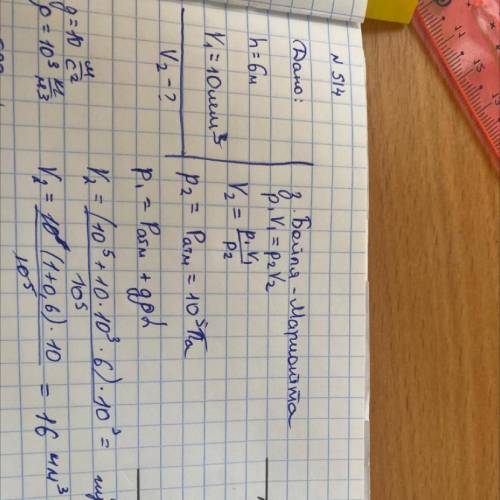 N 514
Дано:
h = 6м
V₁ = 10мм³
V₂ - ?
g = 10 м/с²
ρ = 10³ кг/м³
з. Бойля - Мариотта
p₁V₁ = p₂V₂
V₂ = p₁V₁/p₂
p₂ = Pатм = 10⁵Па
p₁ = Pатм + gρh
V₂ = (10⁵ + 10·10³·6)·10/10⁵ =
V₂ = 10⁵(1+0,6)·10/10⁵ = 16 мм³
14
15